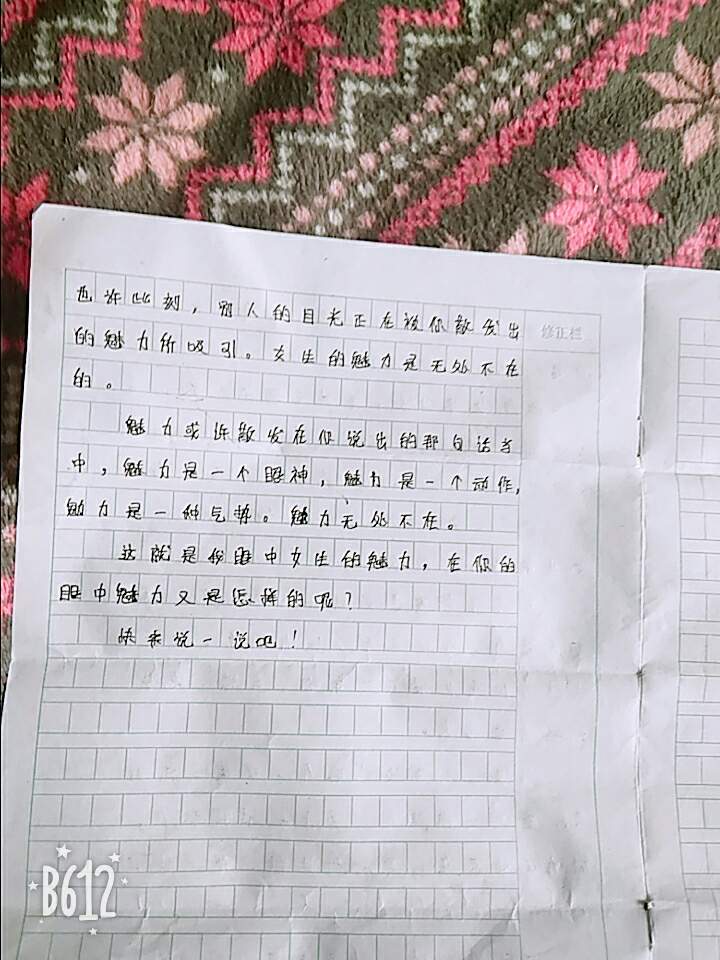 也许此刻，别人的目光正在被你散发出
的魅力所吸引。女生的魅力是无处不在
的。
魅力或许散发在你说出的那句话当
中，魅力是一个眼神，魅力是一个动作，
魅力是一种气势。魅力无处不在。
这就是我眼中女生的魅力，在你的
眼中魅力又是怎样的呢？
快来说一说吧！
修正栏
B612